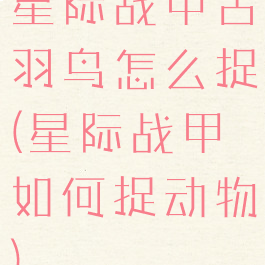 星际战甲古
羽鸟怎么捉
(星际战甲
如何捉动物
)